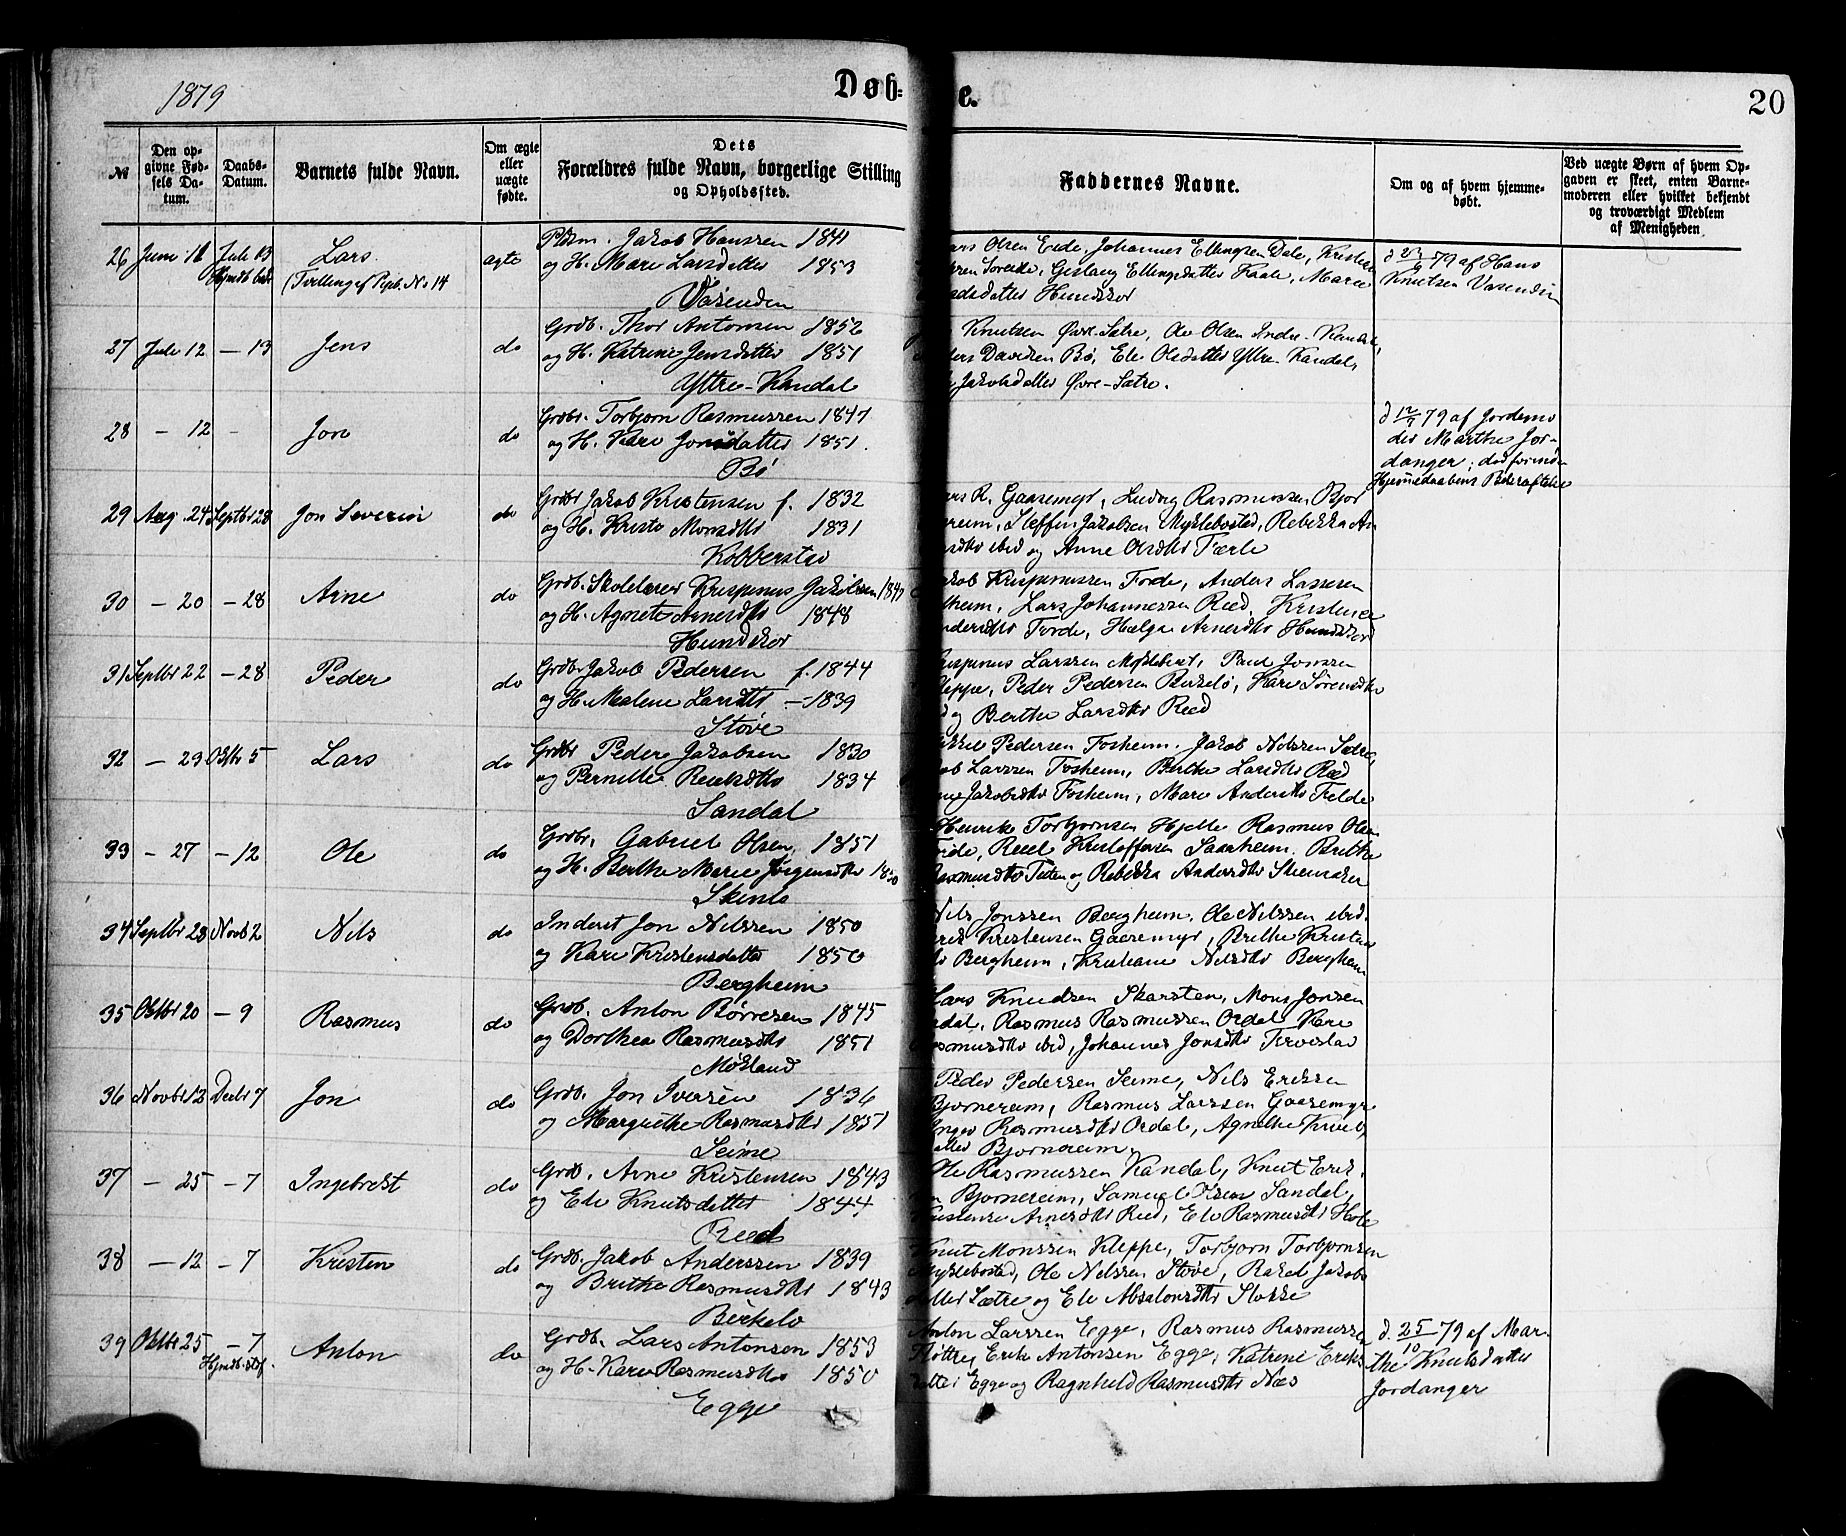 1879
Døb=
e.
20
№
Den op=
givne Fød=
sels Da=
tum.
Daabs=
Datum.
Barnets fulde Navn.
Om ægte
eller
uægte
fødte.
Dets
Forældres fulde Navn, borgerlige Stilling
og Opholdssted.
Faddernes Navne.
Om og af hvem hjemme=
døbt.
Ved uægte Børn af hvem Op=
gaven er skeet, enten Barne=
moderen eller hvilket bekjendt
og troværdigt Medlem
af Menigheden.
26 Juni 11 Juli 13 Lars. ægte Pdsm. Jakob Hanssen 1841
(Tvilling cf Pigeb. No 14 og H. Mari Larsdatter 1853
Vasenden
Olsen Eide, Johannes Ellingsen Dale, Kristen
Ellingsdatter Kaale, Marie
Hundskor
79 af Hans
Knutsen Vasenden
27 Juli 12 — 13 Jens do Grdb. Thor Antonsen 1852
og H. Katrine Jensdatter 1851
Ytre-Kandal
Knutsen Øvre-Sætre, Ole Olsen Indre-Kandal,
Davidsen Bø, Eli Olsdatter Ytre-Kandal,
Jakobsdatter Øvre-Sætre.
28 — 12 — Jon do Grdbr. Torbjørn Rasmussen 1847
og H. Kari Jonsdatter 1851.
Bø
d 12/7 79 af Jordemo
der Marthe Jor-
danger; død forinden
Hjemmedaabens Bekræftelse
29 Aug. 24 Septbr 28 Jon Severin do Grdbr Jakob Kristensen f. 1832
og H. Kristi Monsdtr 1831
Kobberstad
R. Gaasemyr, Ludvig Rasmussen Bjør
Steffen Jakobsen Myklebostad, Rebekka
ibid og Anne Olsdtr Tærle
30 — 20 — 28 Arne do Grdb. Skolelærer Krispinus Jakobsen 1847
og H. Agnete Arnesdtr 1848
Hundskor
Krispinussen Førde, Anders Lassesen
Lars Johannessen Reed, Kristine
Førde, Helga Arnesdtr Hundskor
31 Septbr 22 — 28 Peder do Grdb. Jakob Pedersen f. 1844
og H. Malene Larsdtr — 1839
Støve
Larssen Myklebust, Paul Jonssen
Kleppe, Peder Pedersen Birkelo, Kari Sørensdtr
og Berthe Larsdtr Reed
32 — 29 Oktbr 5 Lars do Grdbr Peder Jakobsen 1830
og Pernille 1834
Sandal
Pedersen Fosheim, Jakob Nilssen Sætre,
Larssen Fosheim, Berthe Larsdtr Reed
Jakobsdtr Fosheim, Mari Andersdtr Felde
33 — 27 — 12 Ole do Grdbr. Gabriel Olsen, 1851
og H. Berthe Marie Jørgensdtr 1850
Skinlo
Henrik Torbjørnsen Hjelle Rasmus Olsen
Kristoffersen Saarheim. Brithe
Rasmusdtr og Rebekka Andersdtr
34 Septbr 28 Novb 2 Nils do Inderst Jon Nilssen 1850
og Kari Kristensdatter 1850
Bergheim
Nils Jonssen Bergheim. Ole Nilssen ibid.
Kristensen Gaasemyr, Brithe Kristens
Bergheim, Kristiane Nilsdtr Bergheim
35 Oktbr 20 — 9 Rasmus do Grdb. Anton Børresen 1845
og Dorthea Rasmusdtr 1851
Møkland
Lars Knudsen Skarsten, Mons Jonsen
Rasmus Rasmussen Ordal Kari
Rasmusdtr ibid, Johanne Jonsdtr
36 Novbr 12 Decbr 7 Jon do Grdb. Jon Iversen 1836
og Margrethe Rasmusdtr 1851
Seime
Peder Pedersen Seime, Nils Eriksen
Bjørnereim, Rasmus Larssen Gaasemyr
Inger Rasmusdtr Ordal, Agnethe Knuts
datter Bjørnereim.
37 — 25 — 7 Ingebrekt do Grdb. Arne Kristensen 1843
og Eli Knutsdatter 1844
Reed
Ole Rasmussen Kandal, Knut Erik-
Bjørnereim, Samuel Olsen Sandal,
Kristense Arnesdtr Reed, Eli Rasmusdtr Hole
38 — 12 — 7 Kristen do Grdb. Jakob Anderssen 1839
og Brithe Rasmusdtr 1843
Birkelo
Knut Monssen Kleppe, Torbjørn Torbjørnsen
Myklebostad, Ole Nilssen Støve, Rakel Jakobs
datter Sætre og Eli Absalonsdtr Slokke
39 Oktbr 25 — 7 Anton do Grdb. Lars Antonsen 1853
og H. Kari Rasmusdtr 1850
Egge
Anton Larssen Egge, Rasmus Rasmussen
Erik Antonsen Egge, Katrine Eriks
datter Egge og Ragnhild Rasmusdtr Næs
d. 25/10 79 af Mar-
the Knutsdatter
Jordanger